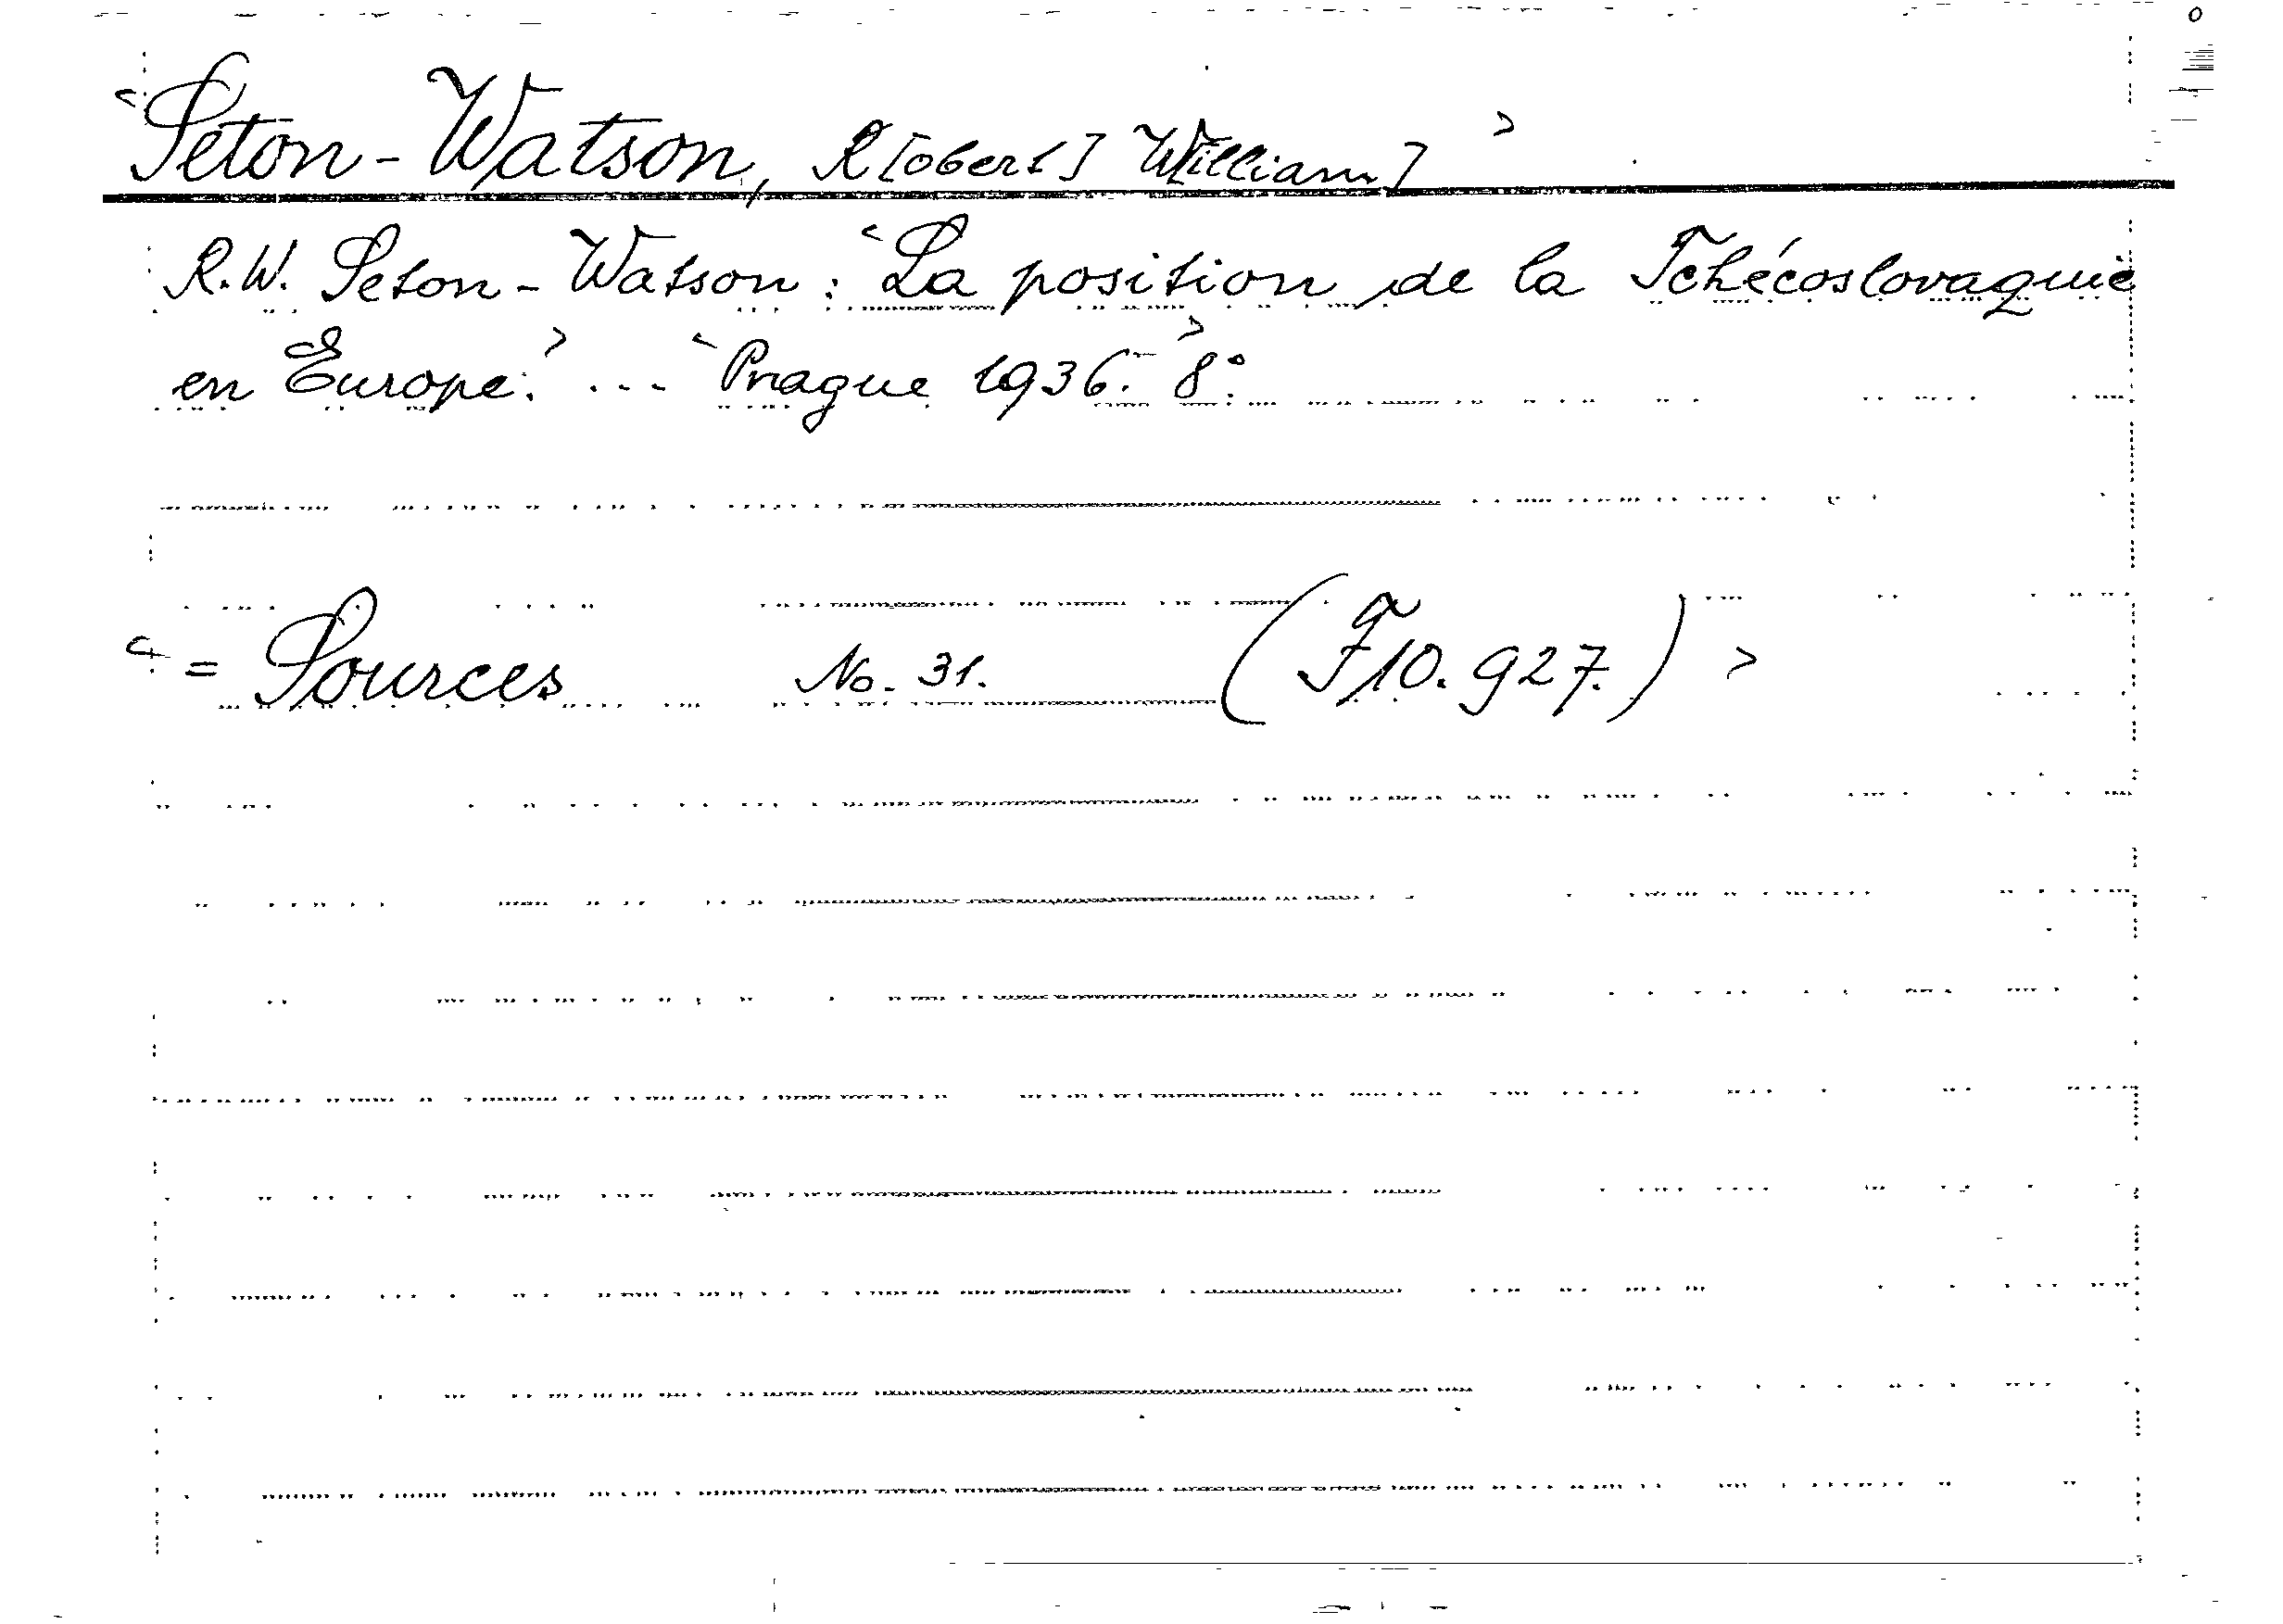 <Seton-Watson, R[obert] William]>
R.W. Seton-Watson: <La position de la Tchécoslovaquie
en Europe.> ... <Prague 1936.> 8°.
<= Sources No. 31. (F10.927.)>